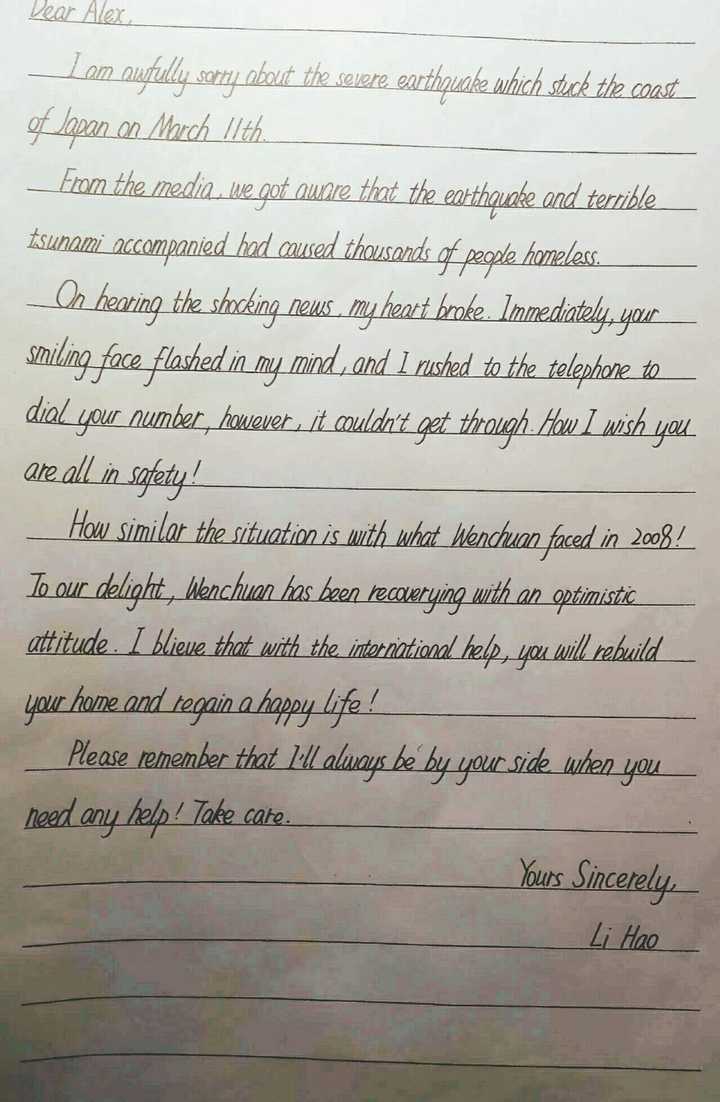 Dear Alex,
I am awfully sorry about the severe earthquake which stuck the coast
of Japan on March 11th.
From the media, we got aware that the earthquake and terrible
tsunami accompanied had caused thousands of people homeless.
On hearing the shocking news, my heart broke. Immediately, your
smiling face flashed in my mind, and I rushed to the telephone to
dial your number, however, it couldn't get through. How I wish you
are all in safety!
How similar the situation is with what Wenchuan faced in 2008!
To our delight, Wenchuan has been recoverying with an optimistic
attitude. I blieve that with the international help, you will rebuild
your home and regain a happy life!
Please remember that I'll always be by your side when you
need any help! Take care.
Yours Sincerely,
Li Hao